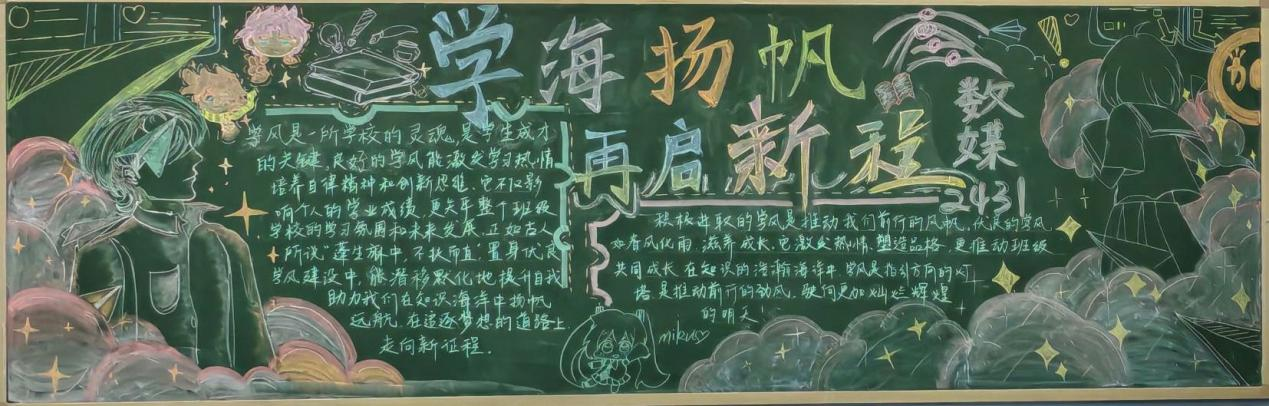 学海扬帆
再启新程
数媒
2431
学风是一所学校的灵魂,是学生成才
的关键.良好的学风能激发学习热情
培养自律精神和创新思维.它不仅影
响个人的学业成绩.更关乎整个班级
学校的学习氛围和未来发展.正如古人
所说"蓬生麻中.不扶而直"置身优良
学风建设中.能潜移默化地提升自我
助力我们在知识海洋中扬帆
远航.在追逐梦想的道路上.
走向新征程.
积极进取的学风是推动我们前行的风帆,优良的学风
如春风化雨.滋养成长.它激发热情.塑造品格.更推动班级
共同成长.在知识的浩瀚海洋中.学风是指引方向的灯
塔.是推动前行的劲风.驶向更加灿烂辉煌
的明天!
miku♡
加